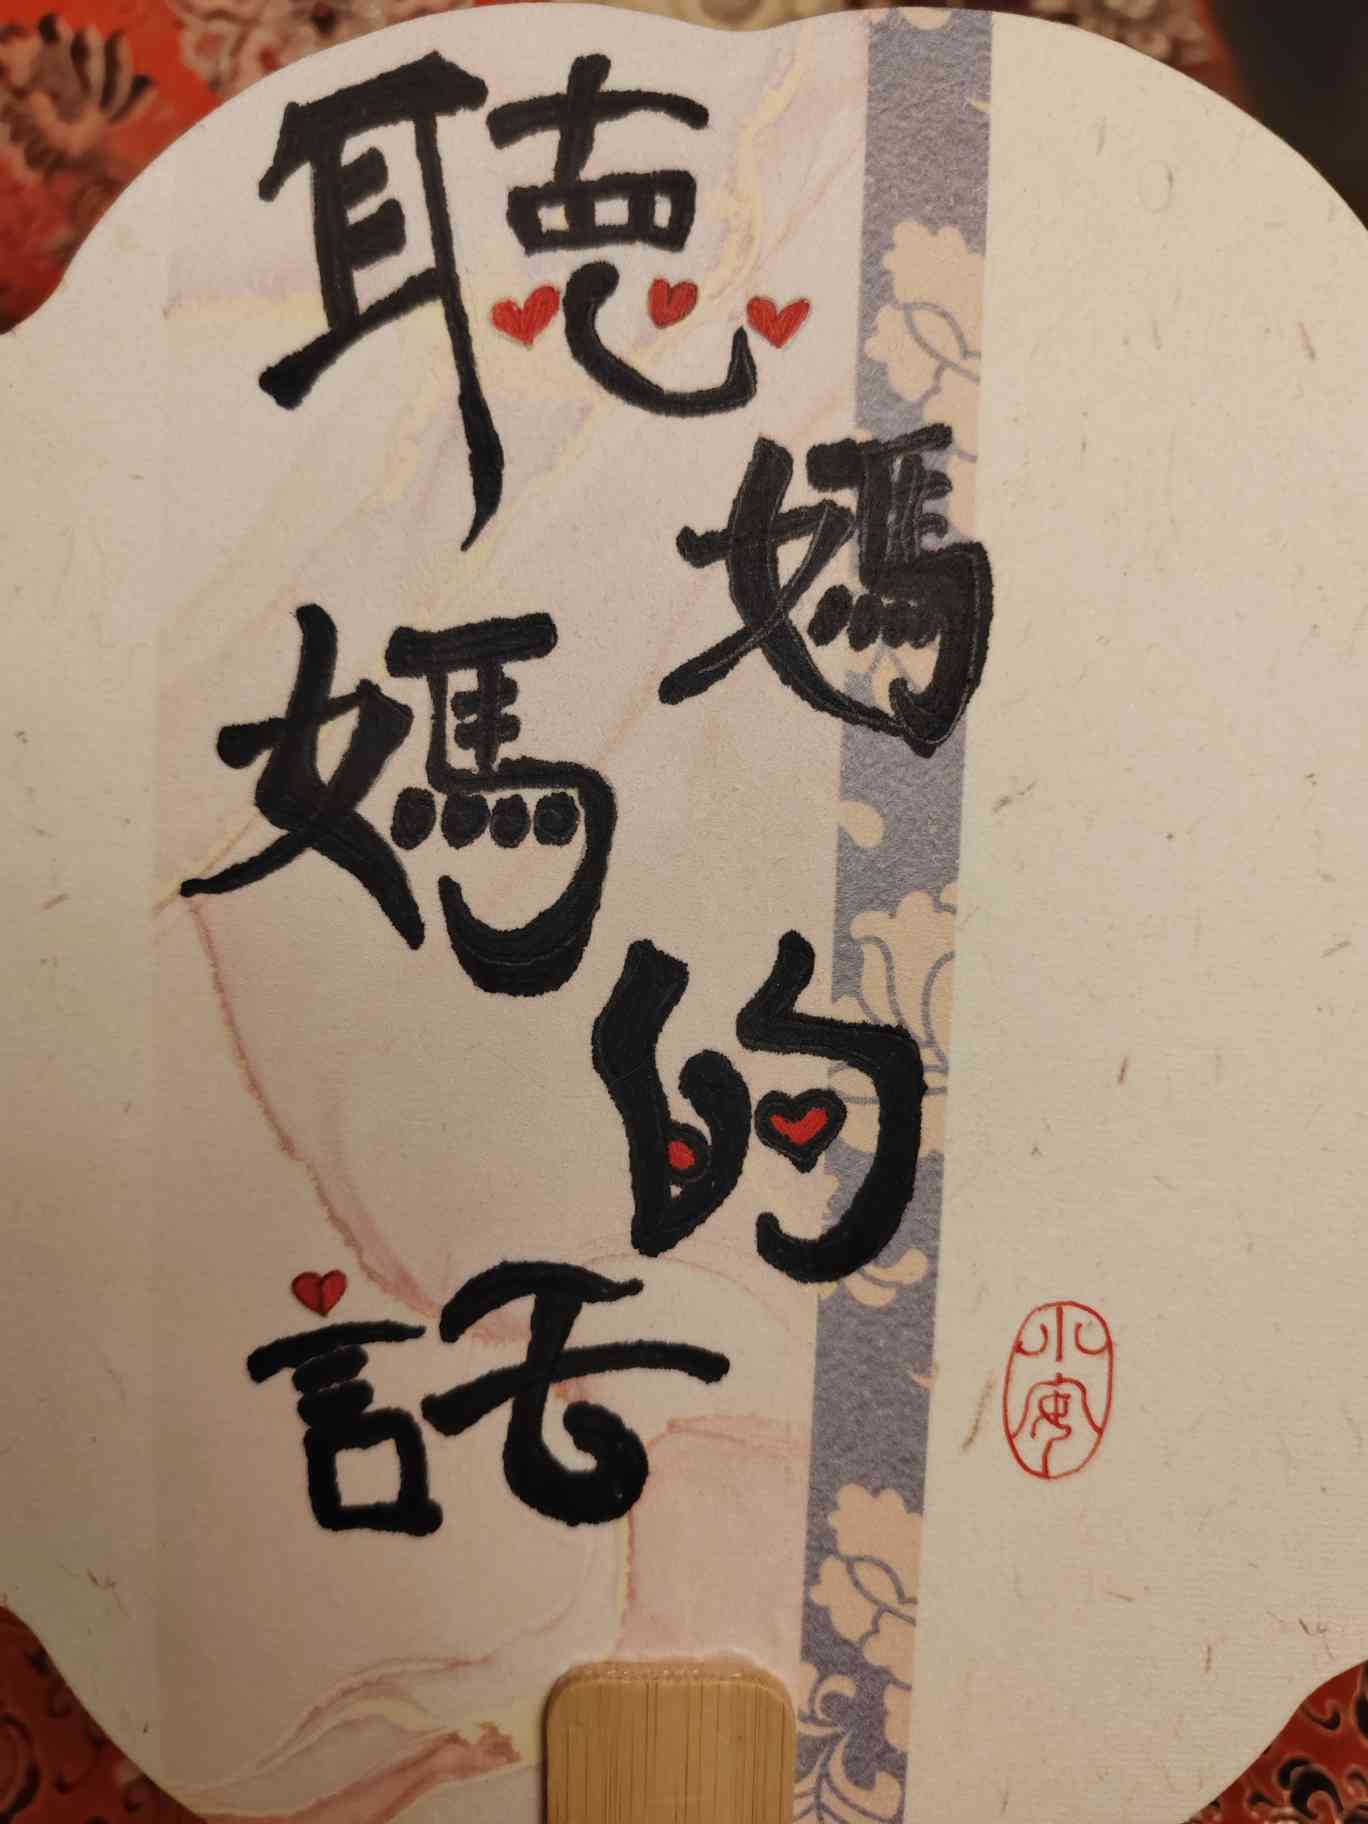 聽媽媽的話
小安